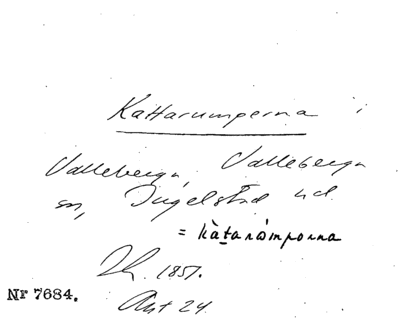 Kattarumperna
Vallebergа, Valleberga
sn, Ingelstad hd.
= kàtaràmporna
1851.
Nr 7684.
Akt 24